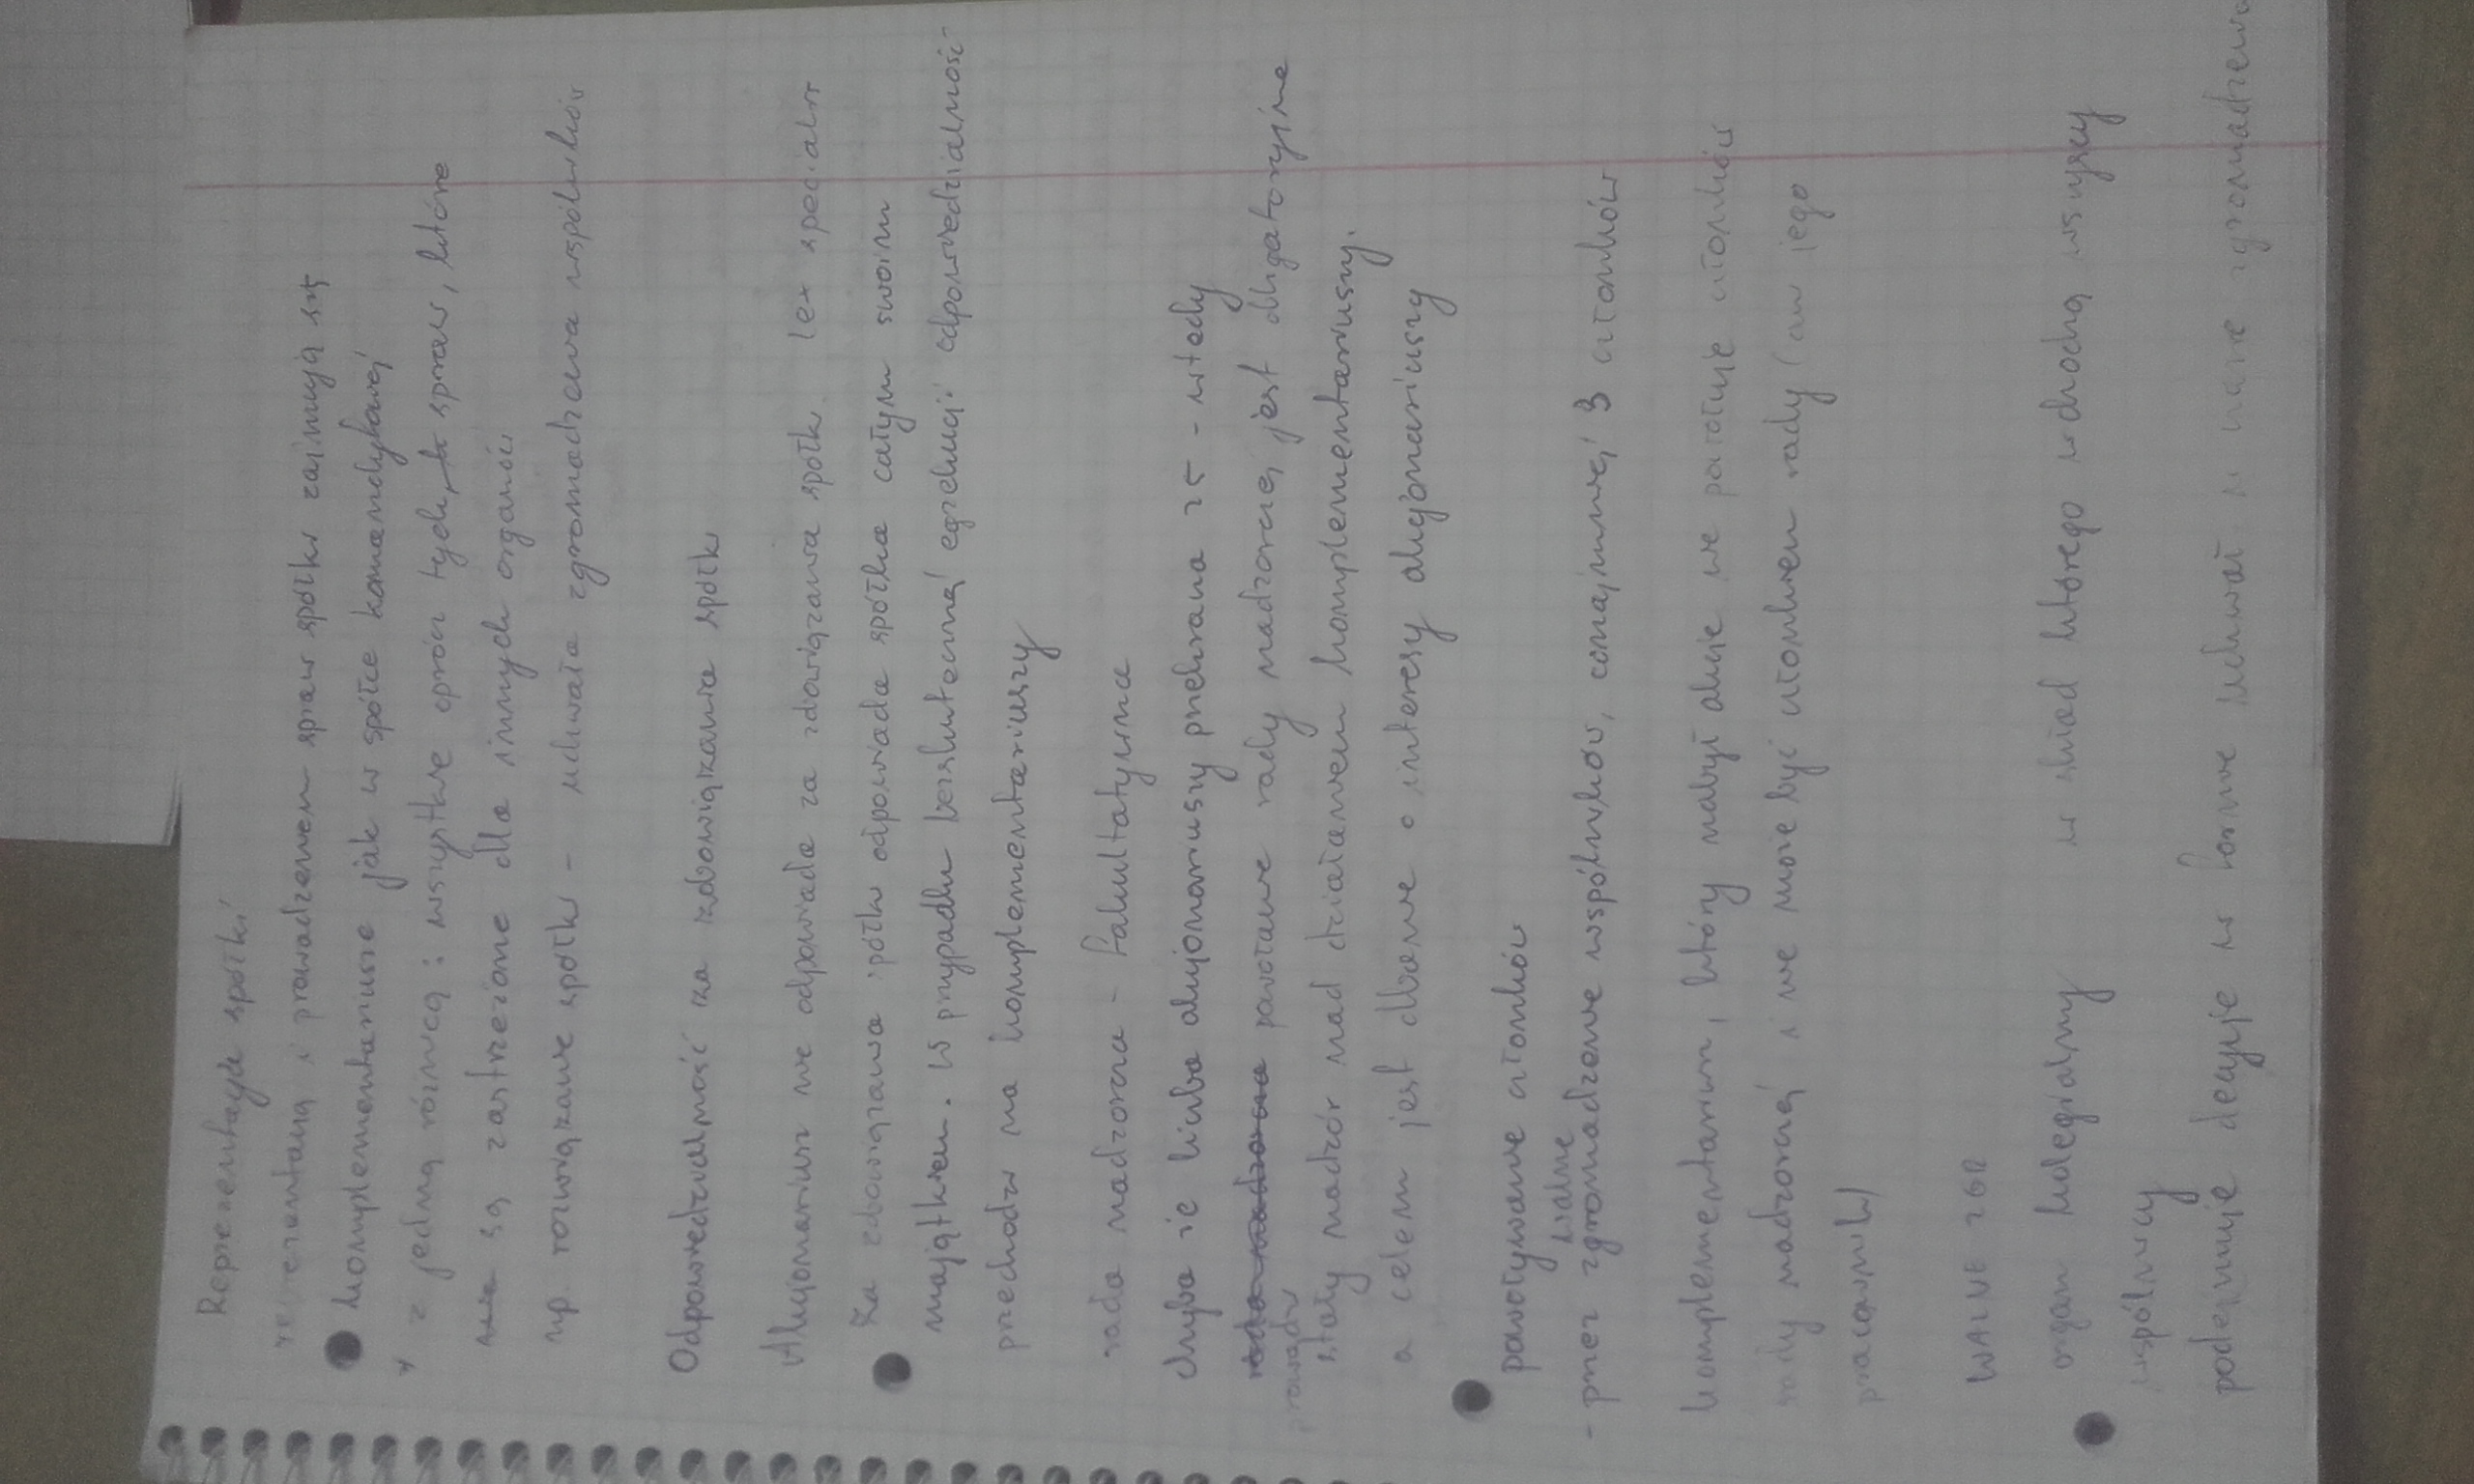 Reprezentacja spółki
reprezentacją i prowadzeniem spraw spółki zajmują się
komplementariusze jak w spółce komandytowej
z jedną różnicą : wszystkie oprócz tych spraw, które
są zastrzeżone dla innych organów
np. rozwiązanie spółki - uchwała zgromadzenia wspólników
Odpowiedzialność za zobowiązania spółki
Akcjonariusz nie odpowiada za zobowiązania spółki. lex specialis
Za zobowiązania spółki odpowiada spółka całym swoim
majątkiem. W przypadku bezskutecznej egzekucji odpowiedzialność
przechodzi na komplementariuszy
rada nadzorcza - fakultatywna
chyba że liczba akcjonariuszy przekracza 25 - wtedy
powołanie rady nadzorczej jest obligatoryjne
prowadzi
stały nadzór nad działaniem komplementariuszy.
a celem jest dbanie o interesy akcjonariuszy
powoływanie członków
walne
- przez zgromadzenie wspólników, conajmniej 3 członków
komplementariusz, który nabył akcje nie powołuje członków
rady nadzorczej i nie może być członkiem rady (ani jego
pracownik)
WALNE ZGR
organ kolegialny w skład którego wchodzą wszyscy
wspólnicy
podejmuje decyzje w formie uchwał, walne zgromadzenie